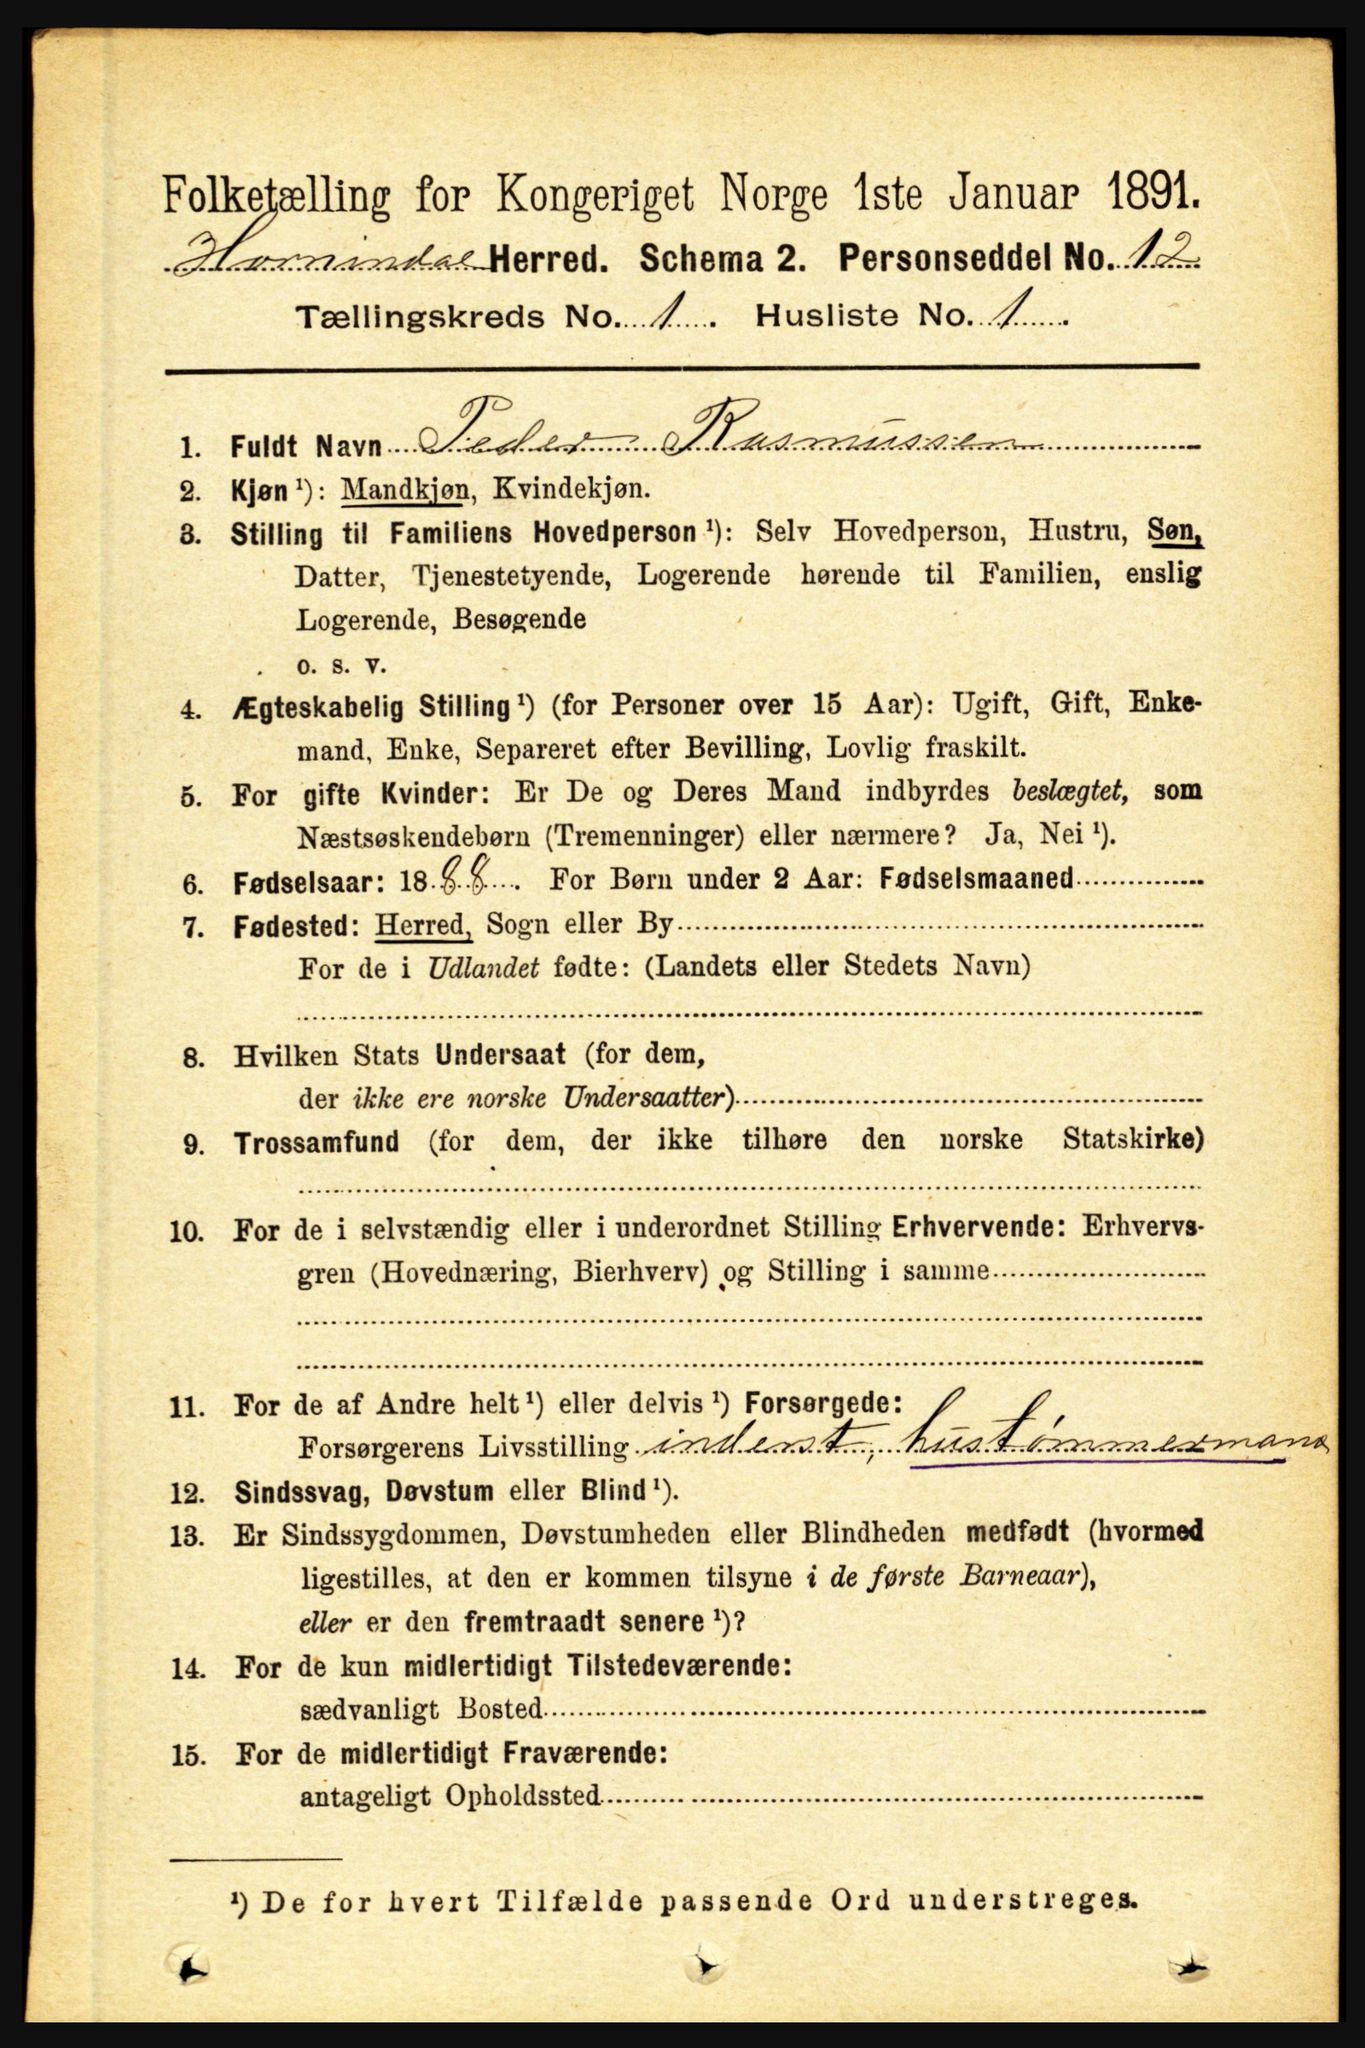 Folketælling for Kongeriget Norge 1ste Januar 1891.
Hornindal Herred. Schema 2. Personseddel No. 12
Tællingskreds No. 1. Husliste No. 1.
1. Fuldt Navn Peder Rasmussen
2. Kjøn ¹): Mandkjøn, Kvindekjøn.
3. Stilling til Familiens Hovedperson ¹): Selv Hovedperson, Hustru, Søn,
Datter, Tjenestetyende, Logerende hørende til Familien, enslig
Logerende, Besøgende
o. s. v.
4. Ægteskabelig Stilling ¹) (for Personer over 15 Aar): Ugift, Gift, Enke-
mand, Enke, Separeret efter Bevilling, Lovlig fraskilt.
5. For gifte Kvinder: Er De og Deres Mand indbyrdes beslægtet, som
Næstsøskendebørn (Tremenninger) eller nærmere? Ja, Nei ¹).
6. Fødselsaar: 1888. For Børn under 2 Aar: Fødselsmaaned
7. Fødested: Herred, Sogn eller By
For de i Udlandet fødte: (Landets eller Stedets Navn)
8. Hvilken Stats Undersaat (for dem,
der ikke ere norske Undersaatter)
9. Trossamfund (for dem, der ikke tilhøre den norske Statskirke)
10. For de i selvstændig eller i underordnet Stilling Erhvervende: Erhvervs-
gren (Hovednæring, Bierhverv) og Stilling i samme
11. For de af Andre helt ¹) eller delvis ¹) Forsørgede:
Forsørgerens Livsstilling inderst, hustømmermand
12. Sindssvag, Døvstum eller Blind ¹).
13. Er Sindssygdommen, Døvstumheden eller Blindheden medfødt (hvormed
ligestilles, at den er kommen tilsyne i de første Barneaar),
eller er den fremtraadt senere ¹)?
14. For de kun midlertidigt Tilstedeværende:
sædvanligt Bosted
15. For de midlertidigt Fraværende:
antageligt Opholdssted
¹) De for hvert Tilfælde passende Ord understreges.